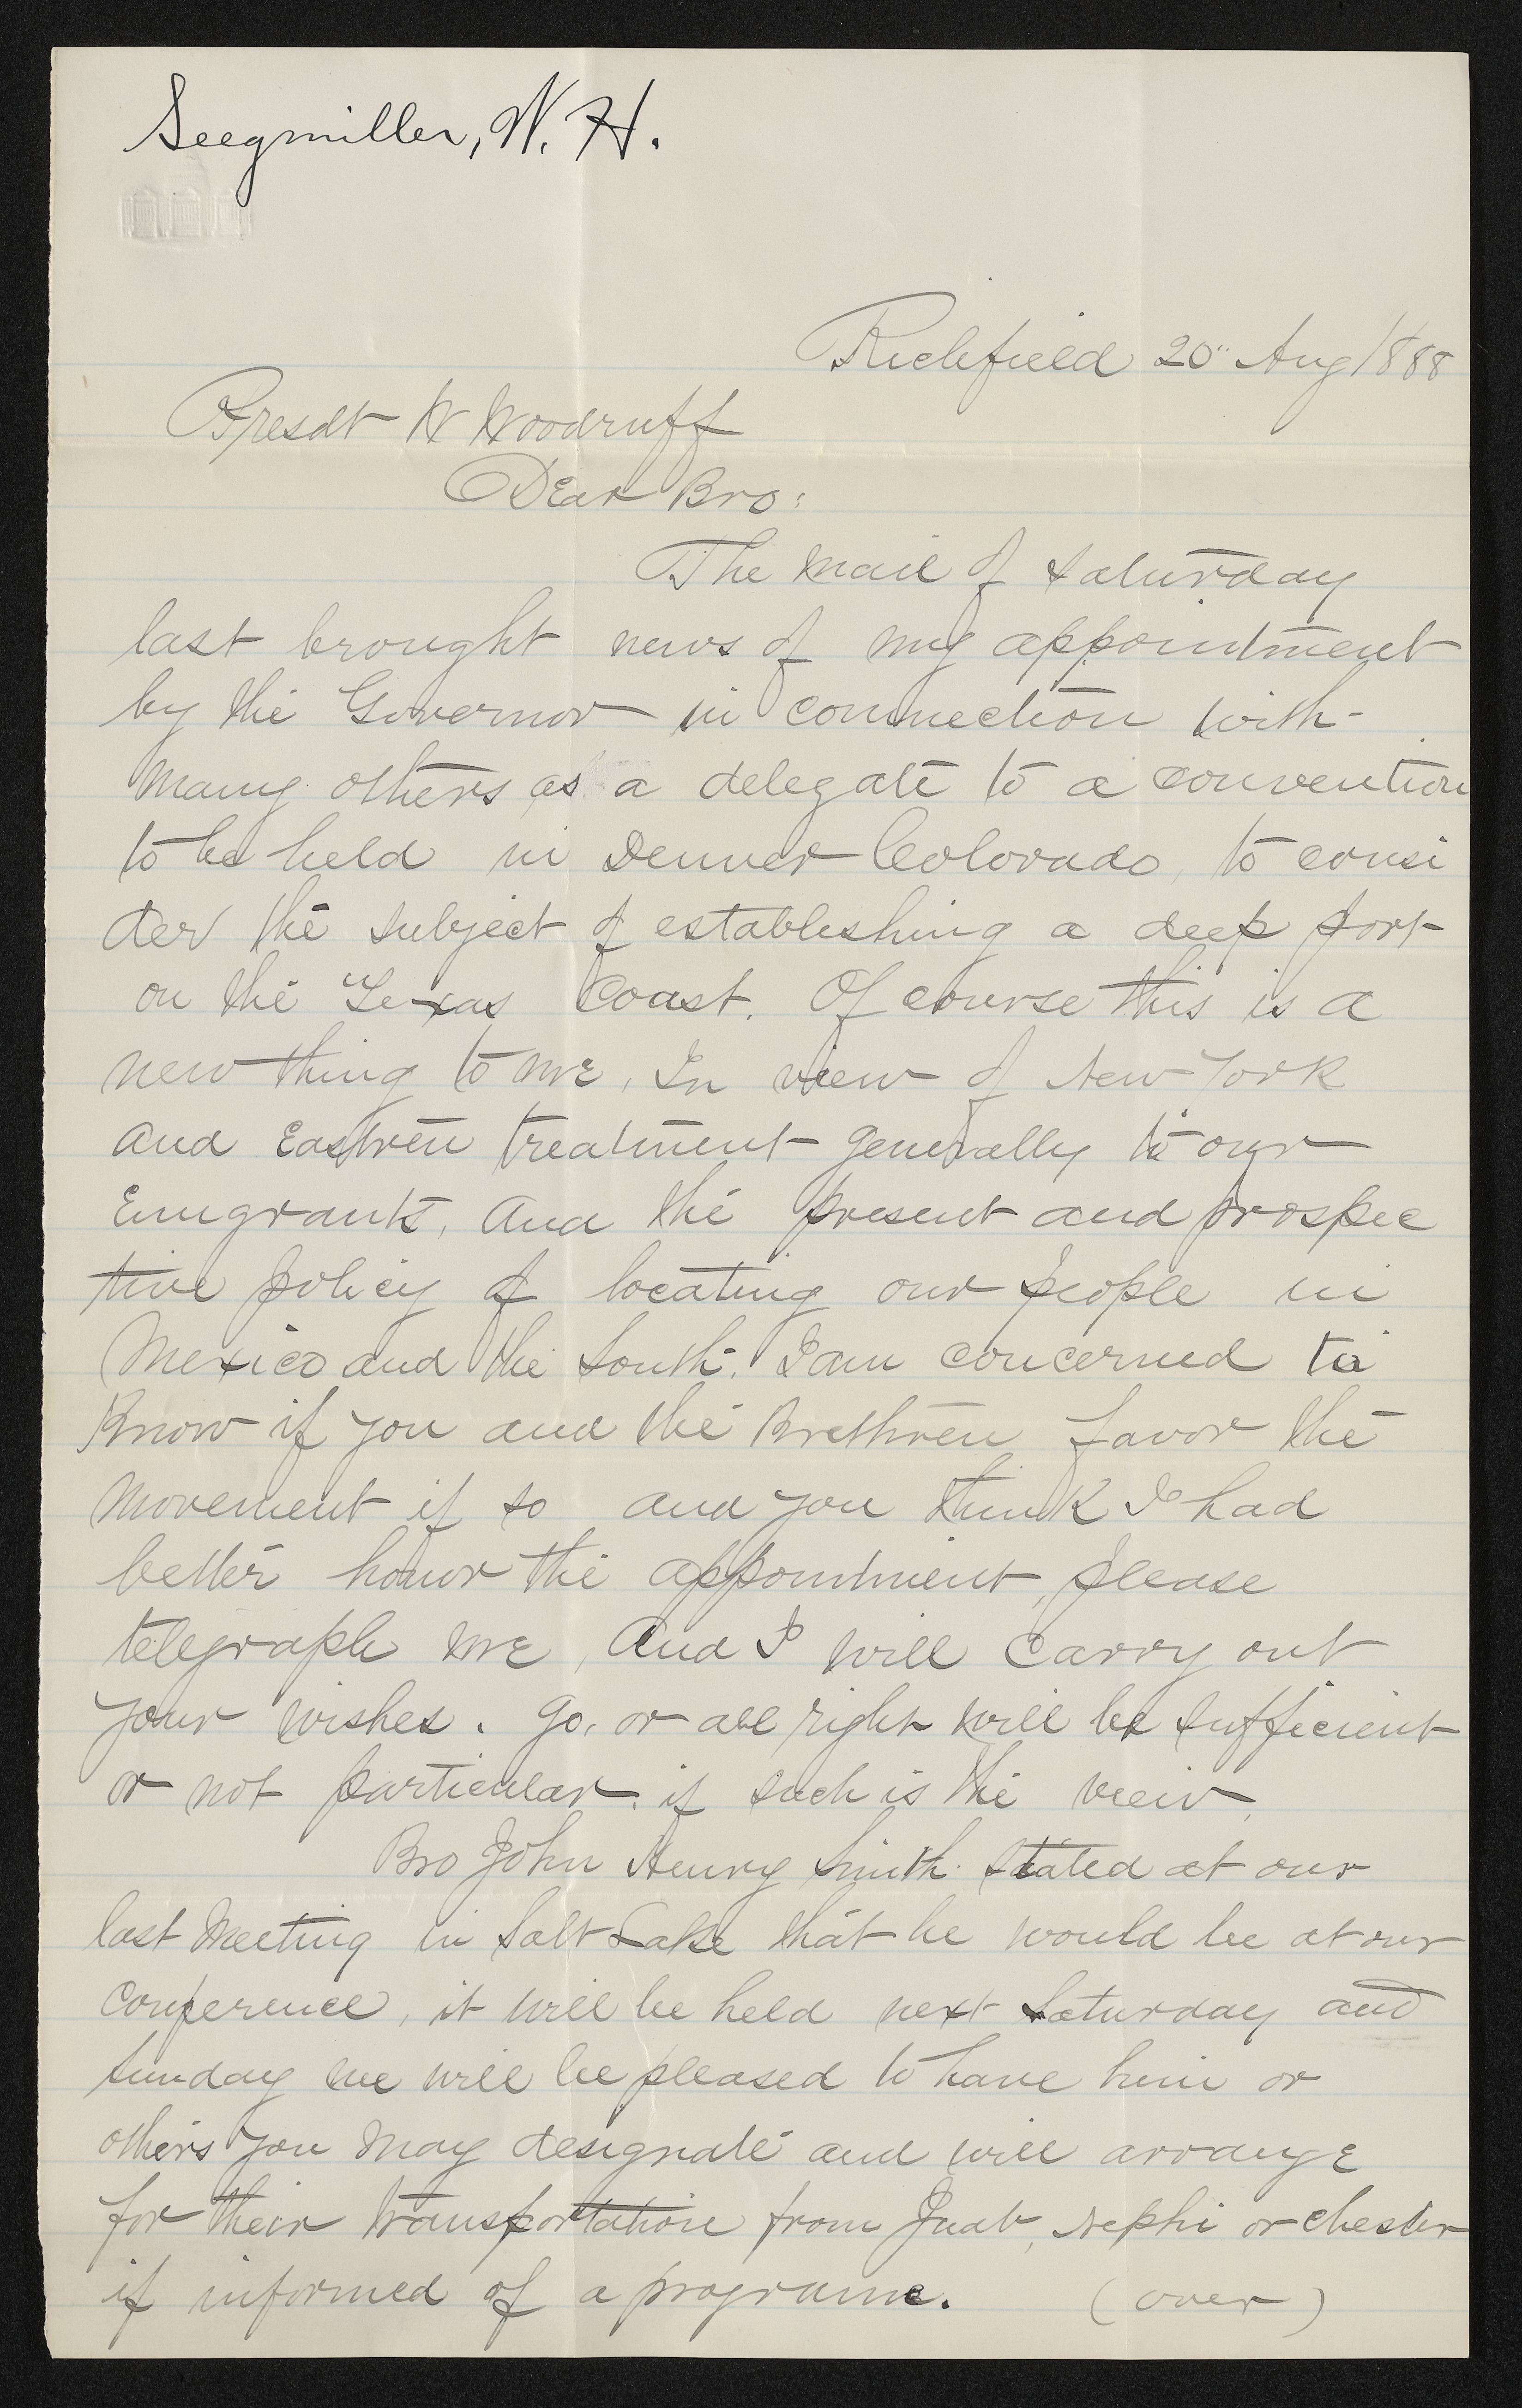 Seegmiller, W. H.
Richfield 20" Aug 1888
Presdt W Woodruff
Dear Bro:
The mail of Saturday
last brought news of my appointment
by the Governor in connection with
many others as a delegate to a convention
to be held in Denver Colorado, to consi
der the subject of establishing a deep port
on the Texas Coast. Of course this is a
new thing to me. In view of New York
and Eastren treatment generally to our
Emigrants, and the present and prospec
tive policy of locating our people in
Mexico and the South. I am concerned to
Know if you and the Brethren favor the
movement if so and you think I had
better honor the appointment, please
telegraph me, and I will carry out
your wishes. go, or all right will be sufficient
or not particular. if such is the veiw.
Bro John Henry Smith stated at our
last meeting in Salt Lake that he would be at our
Conference, it will be held next Saturday and
Sunday we will be pleased to have him or
others you may designate and will arrange
for their transportation from Juab, Nephi or Chester
if informed of a programe. (over)